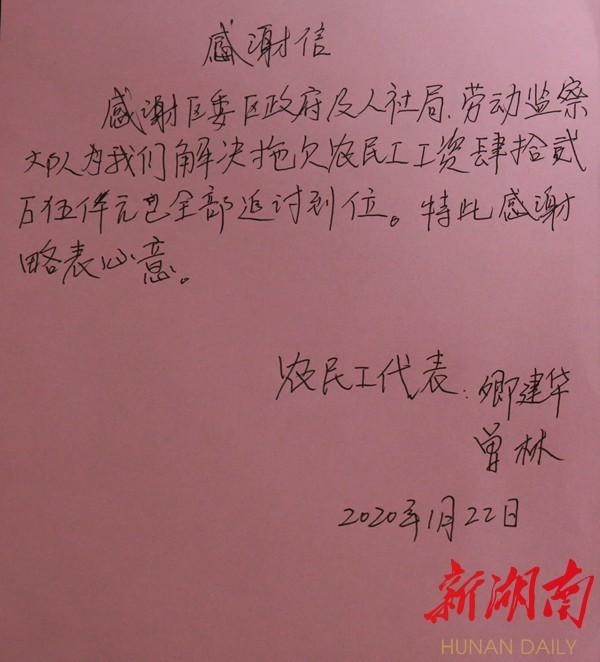 感谢信
感谢区委区政府及人社局、劳动监察
大队为我们解决拖欠农民工工资肆拾贰
万伍仟元已全部追讨到位。特此感谢
略表心意。
农民工代表:卿建华
曾林
2020年1月22日
新湖南
HUNAN DAILY